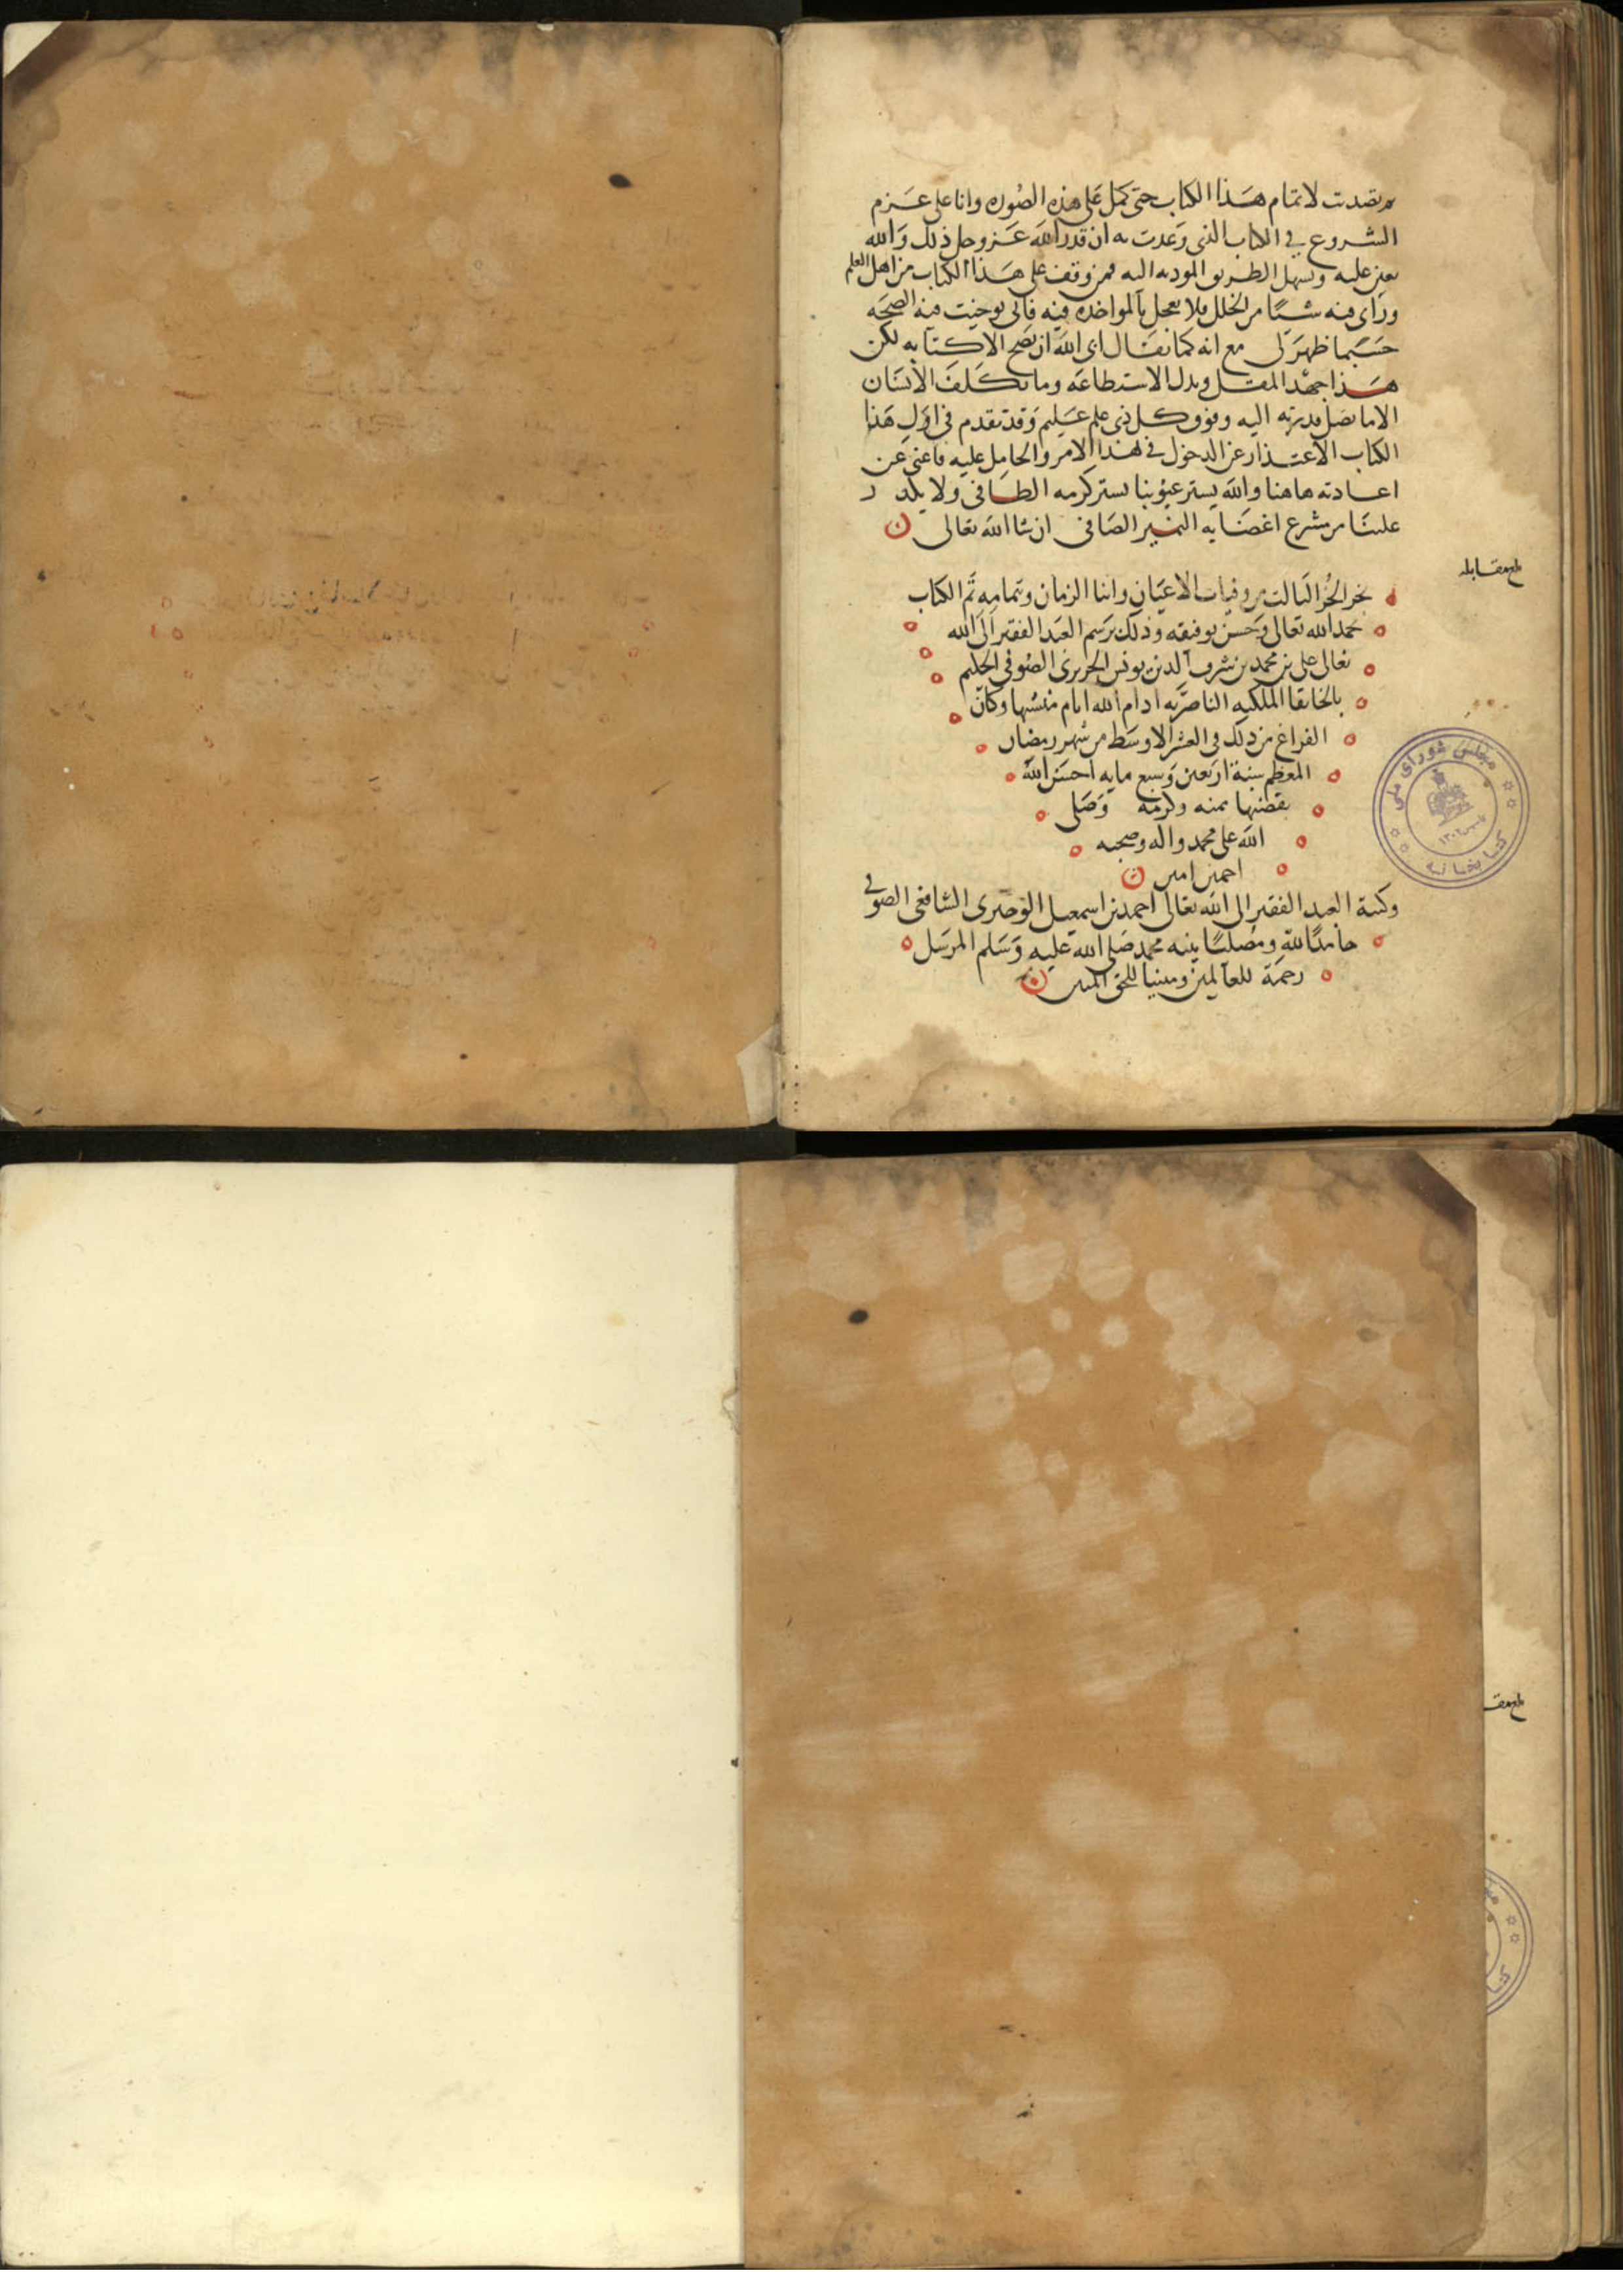 فتصدت لاتمام هذا الكتاب حتى كمل على هذه الصوره وانا على عزم
الشروع في الكتاب الذى وعدت به ان قدر الله عز وجل ذلك والله
يعين عليه ويسهل الطريق الموديه اليه فمن وقف على هذا الكتاب من اهل العلم
وراى فيه شيئا من الخلل فلا يعجل بالمواخذه فيه فانى توخيت فيه الصحه
حسبما ظهر لى مع انه كما يقال ابى الله ان يصح الا كتابه لكن
هذا جهد المقل وبذل الاستطاعه وما يكلف الانسان
الا ما تصل قدرته اليه وفوق كل ذى علم عليم وقد تقدم فى اول هذا
الكتاب الاعتذار عن الدخول في هذا الامر والحامل عليه فاغنى عن
اعادته هاهنا والله يستر عيوبنا بستر كرمه الضافى ولا يكدر
علينا من مشرع اغضايه النمير الصافى ان شا الله تعالى
بلغ مقابله
نجز الجز الثالث من وفيات الاعيان وابنا الزمان وبتمامه تم الكتاب
بحمد الله تعالى وحسن توفيقه وذلك برسم العبد الفقير الى الله
تعالى على بن محمد بن شرف الدين يونس الحريرى الصوفى
بالخانقا الملكيه الناصريه ادام الله ايام منشيها وكان
الفراغ من ذلك فى العشر الاوسط من شهر رمضان
المعظم سنة اربعين وسبع مايه احسن الله
تقضيها بمنه وكرمه وصلى
الله على محمد واله وصحبه
اجمعين امين
وكتبه العبد الفقير الى الله تعالى احمد بن اسمعيل الشافعى الصوفى
حامدا لله ومصليا نبيه محمد صلى الله عليه وسلم المرسل
رحمة للعالمين ومبينا للحق المبين
مجلس شورای ملی
کتابخانه